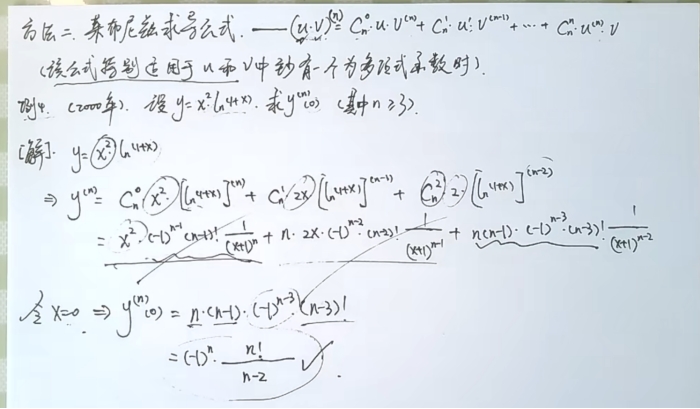 方法二. 莱布尼兹求导公式. ——(u·v)^(n) = C_n^0·u·v^(n) + C_n^1·u'·v^(n-1) + ··· + C_n^n·u^(n)·v
(该公式特别适用于u和v中到有一个为多项式函数时).
例4. (2000年). 设 y=x²·ln(1+x). 求y^(n)(0) (其中n≥3).
[解]. y=x²·ln(1+x)
⇒ y^(n) = C_n^0·x²·[ln(1+x)]^(n) + C_n^1·2x·[ln(1+x)]^(n-1) + C_n^2·2·[ln(1+x)]^(n-2)
= x²·(-1)^(n-1)(n-1)!·1/(x+1)^n + n·2x·(-1)^(n-2)·(n-2)!·1/(x+1)^(n-1) + n(n-1)·(-1)^(n-3)·(n-3)!·1/(x+1)^(n-2)
令 x=0 ⇒ y^(n)(0) = n·(n-1)·(-1)^(n-3)·(n-3)!
= (-1)^n·n!/(n-2) ✓.